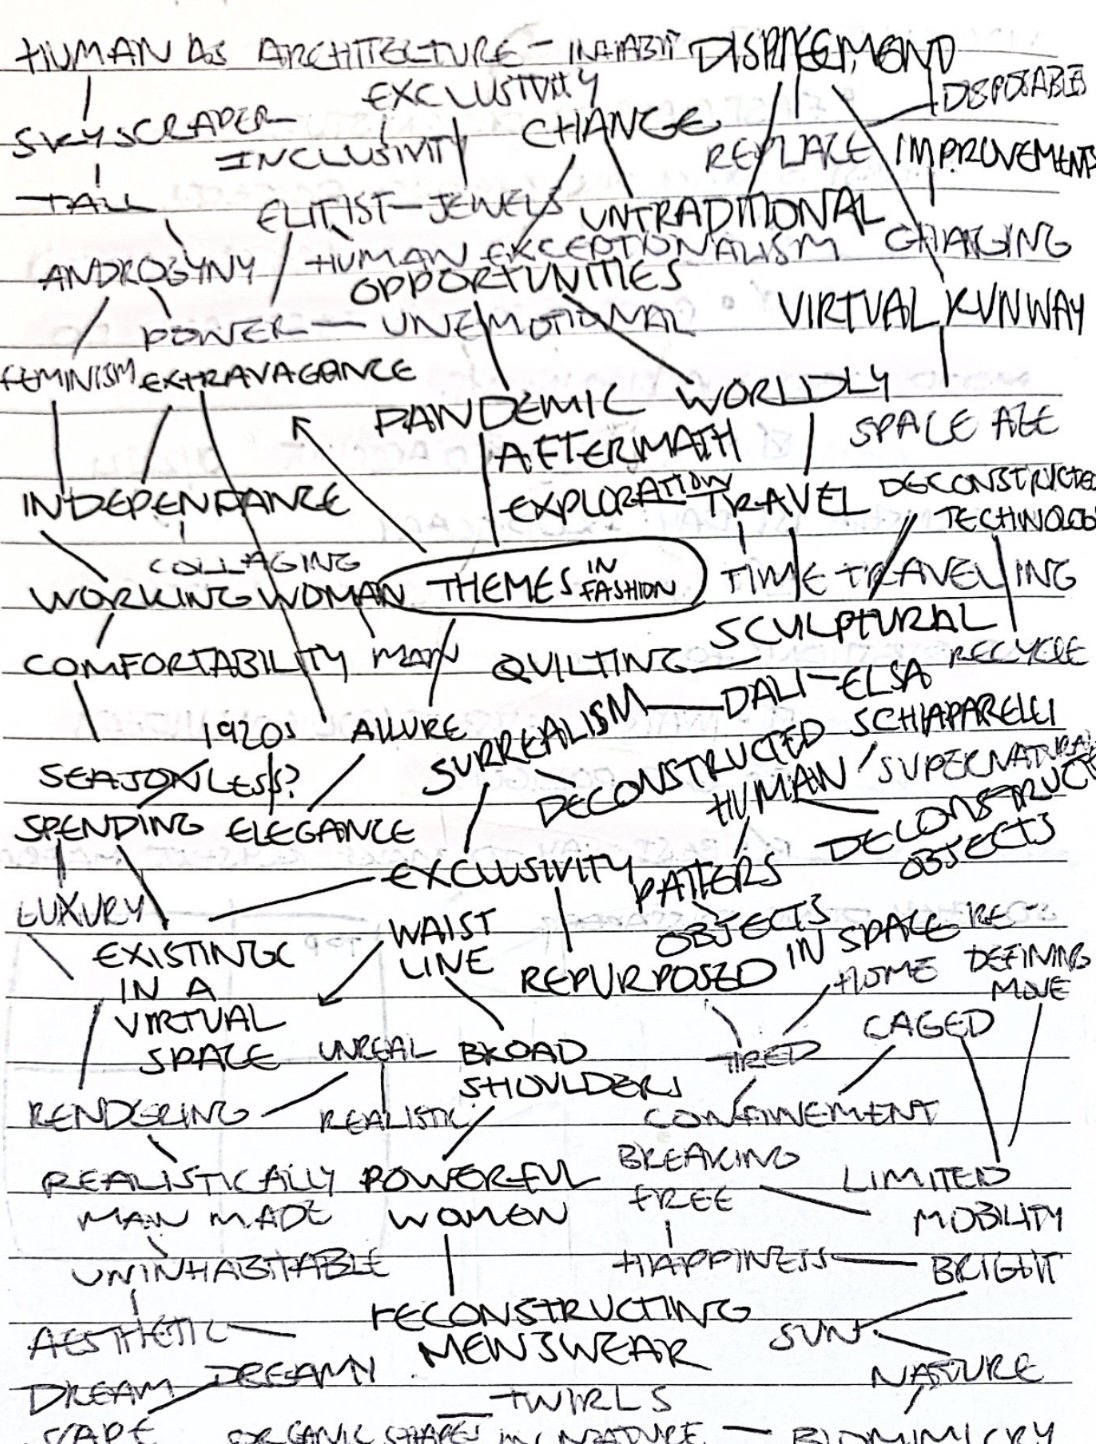 HUMAN AS ARCHITECTURE - INHABIT
EXCLUSIVITY
DISPOSABLES
SKYSCRAPER
INCLUSIVITY
CHANGE
REPLACE
IMPROVEMENTS
TALL
ELITIST - JEWELS
UNTRADITIONAL
CHANGING
ANDROGYNY
HUMAN EXCEPTIONALISM
OPPORTUNITIES
POWER - UNEMOTIONAL
VIRTUAL RUNWAY
FEMINISM EXTRAVAGANCE
PANDEMIC WORLDLY
AFTERMATH
SPACE AGE
INDEPENDANCE
EXPLORATION TRAVEL
DECONSTRUCTED
TECHNOLOGY
COLLAGING
WORKING WOMAN
THEMES IN FASHION
TIME TRAVELLING
SCULPTURAL
COMFORTABILITY MAN
QUILTING
RECYCLE
1920s ALLURE
SURREALISM
DALI - ELSA
SCHIAPARELLI
SEASONLESS?
DECONSTRUCTED
HUMAN
SUPERNATURAL
SPENDING ELEGANCE
DECONSTRUCT
OBJECTS
EXCLUSIVITY
LUXURY
WAIST
LINE
OBJECTS
IN SPACE
RE-
DEFINING
EXISTING
IN A
VIRTUAL
SPACE
REPURPOSED
HOME
CAGED
UNREAL
BROAD
SHOULDERS
TIRED
RENDERING
REALISTIC
CONFINEMENT
REALISTICALLY
MAN MADE
POWERFUL
WOMEN
BREAKING
FREE
LIMITED
MOBILITY
UNINHABITABLE
HAPPINESS
BRIGHT
AESTHETIC
RECONSTRUCTING
MENSWEAR
SUN
NATURE
DREAM
DREAMY
TWIRLS
ORGANIC SHAPES IN NATURE - BIOMIMICRY